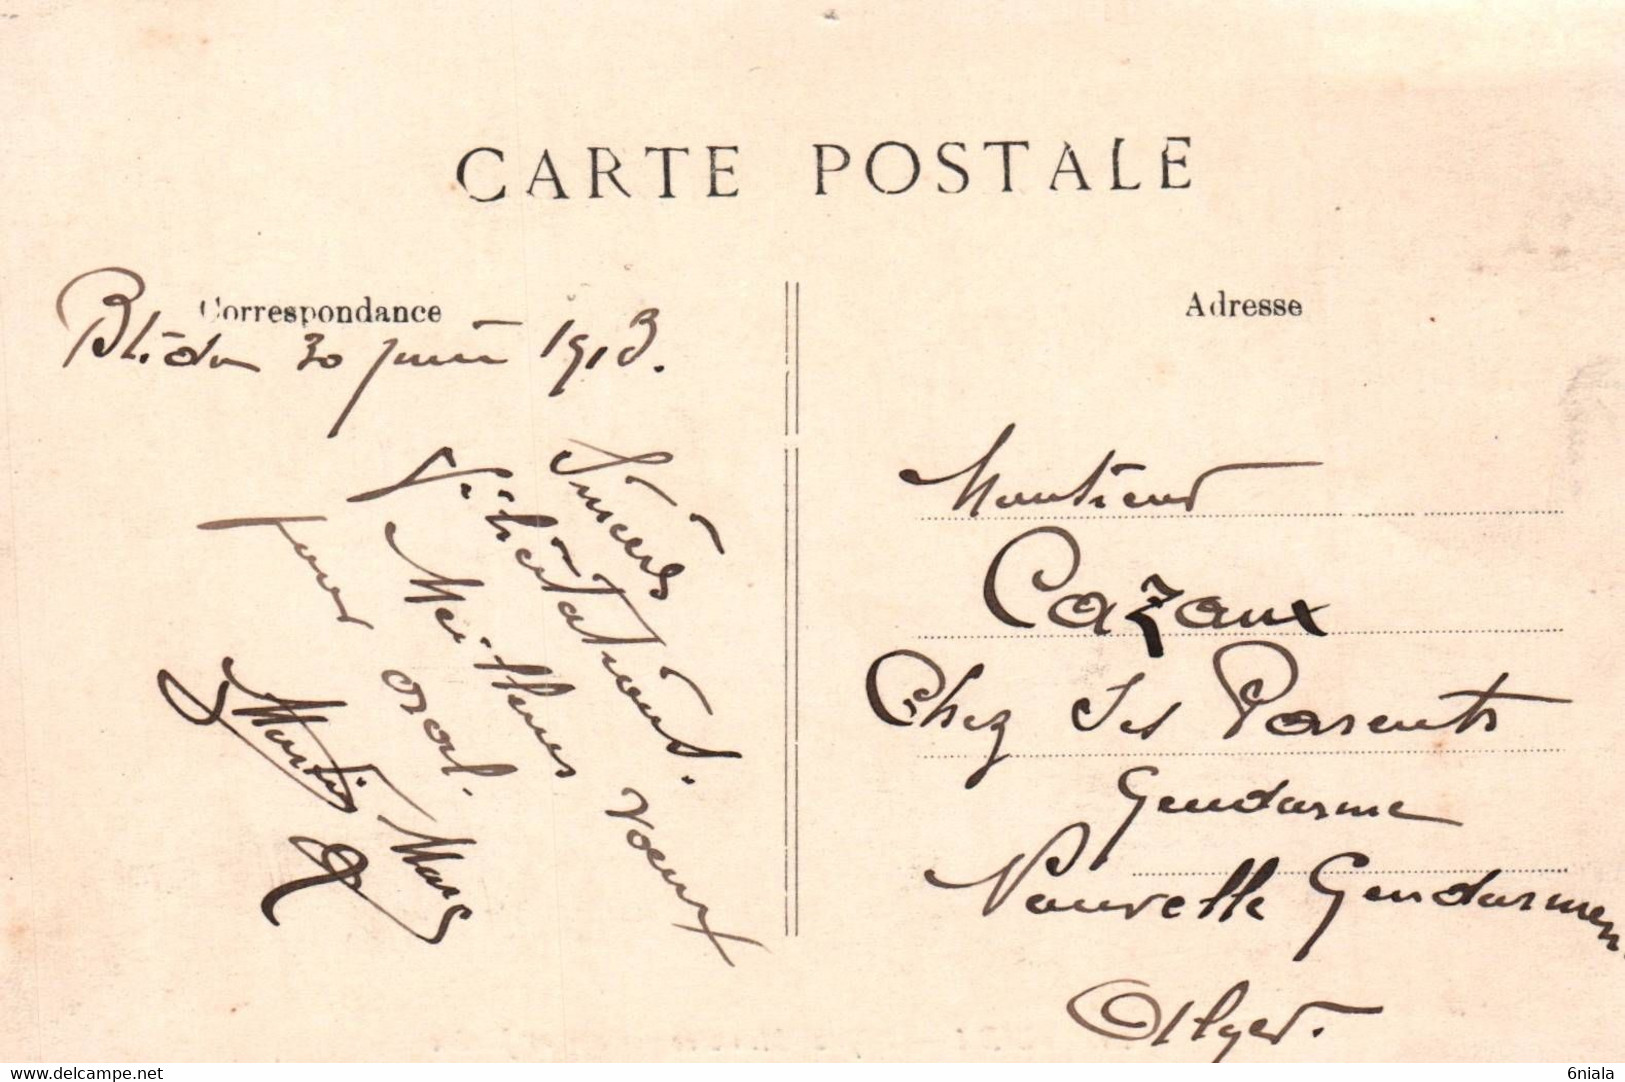 CARTE POSTALE
Correspondance
Adresse
Blida 30 juin 1913.
Sincères
félicitations.
Meilleurs voeux
pour oral.
Martin Marc
Monsieur
Cazaux
Chez ses Parents
Gendarme
Nouvelle Gendarmerie
Alger.
https://www.delcampe.net
6niala